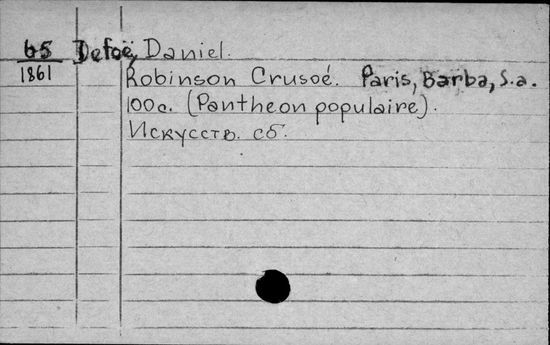 65 Defoë, Daniel.
1861
Robinson Crusoé. Paris, Barba, S.a.
100c. (Pantheon populaire).
Искусств. сб.